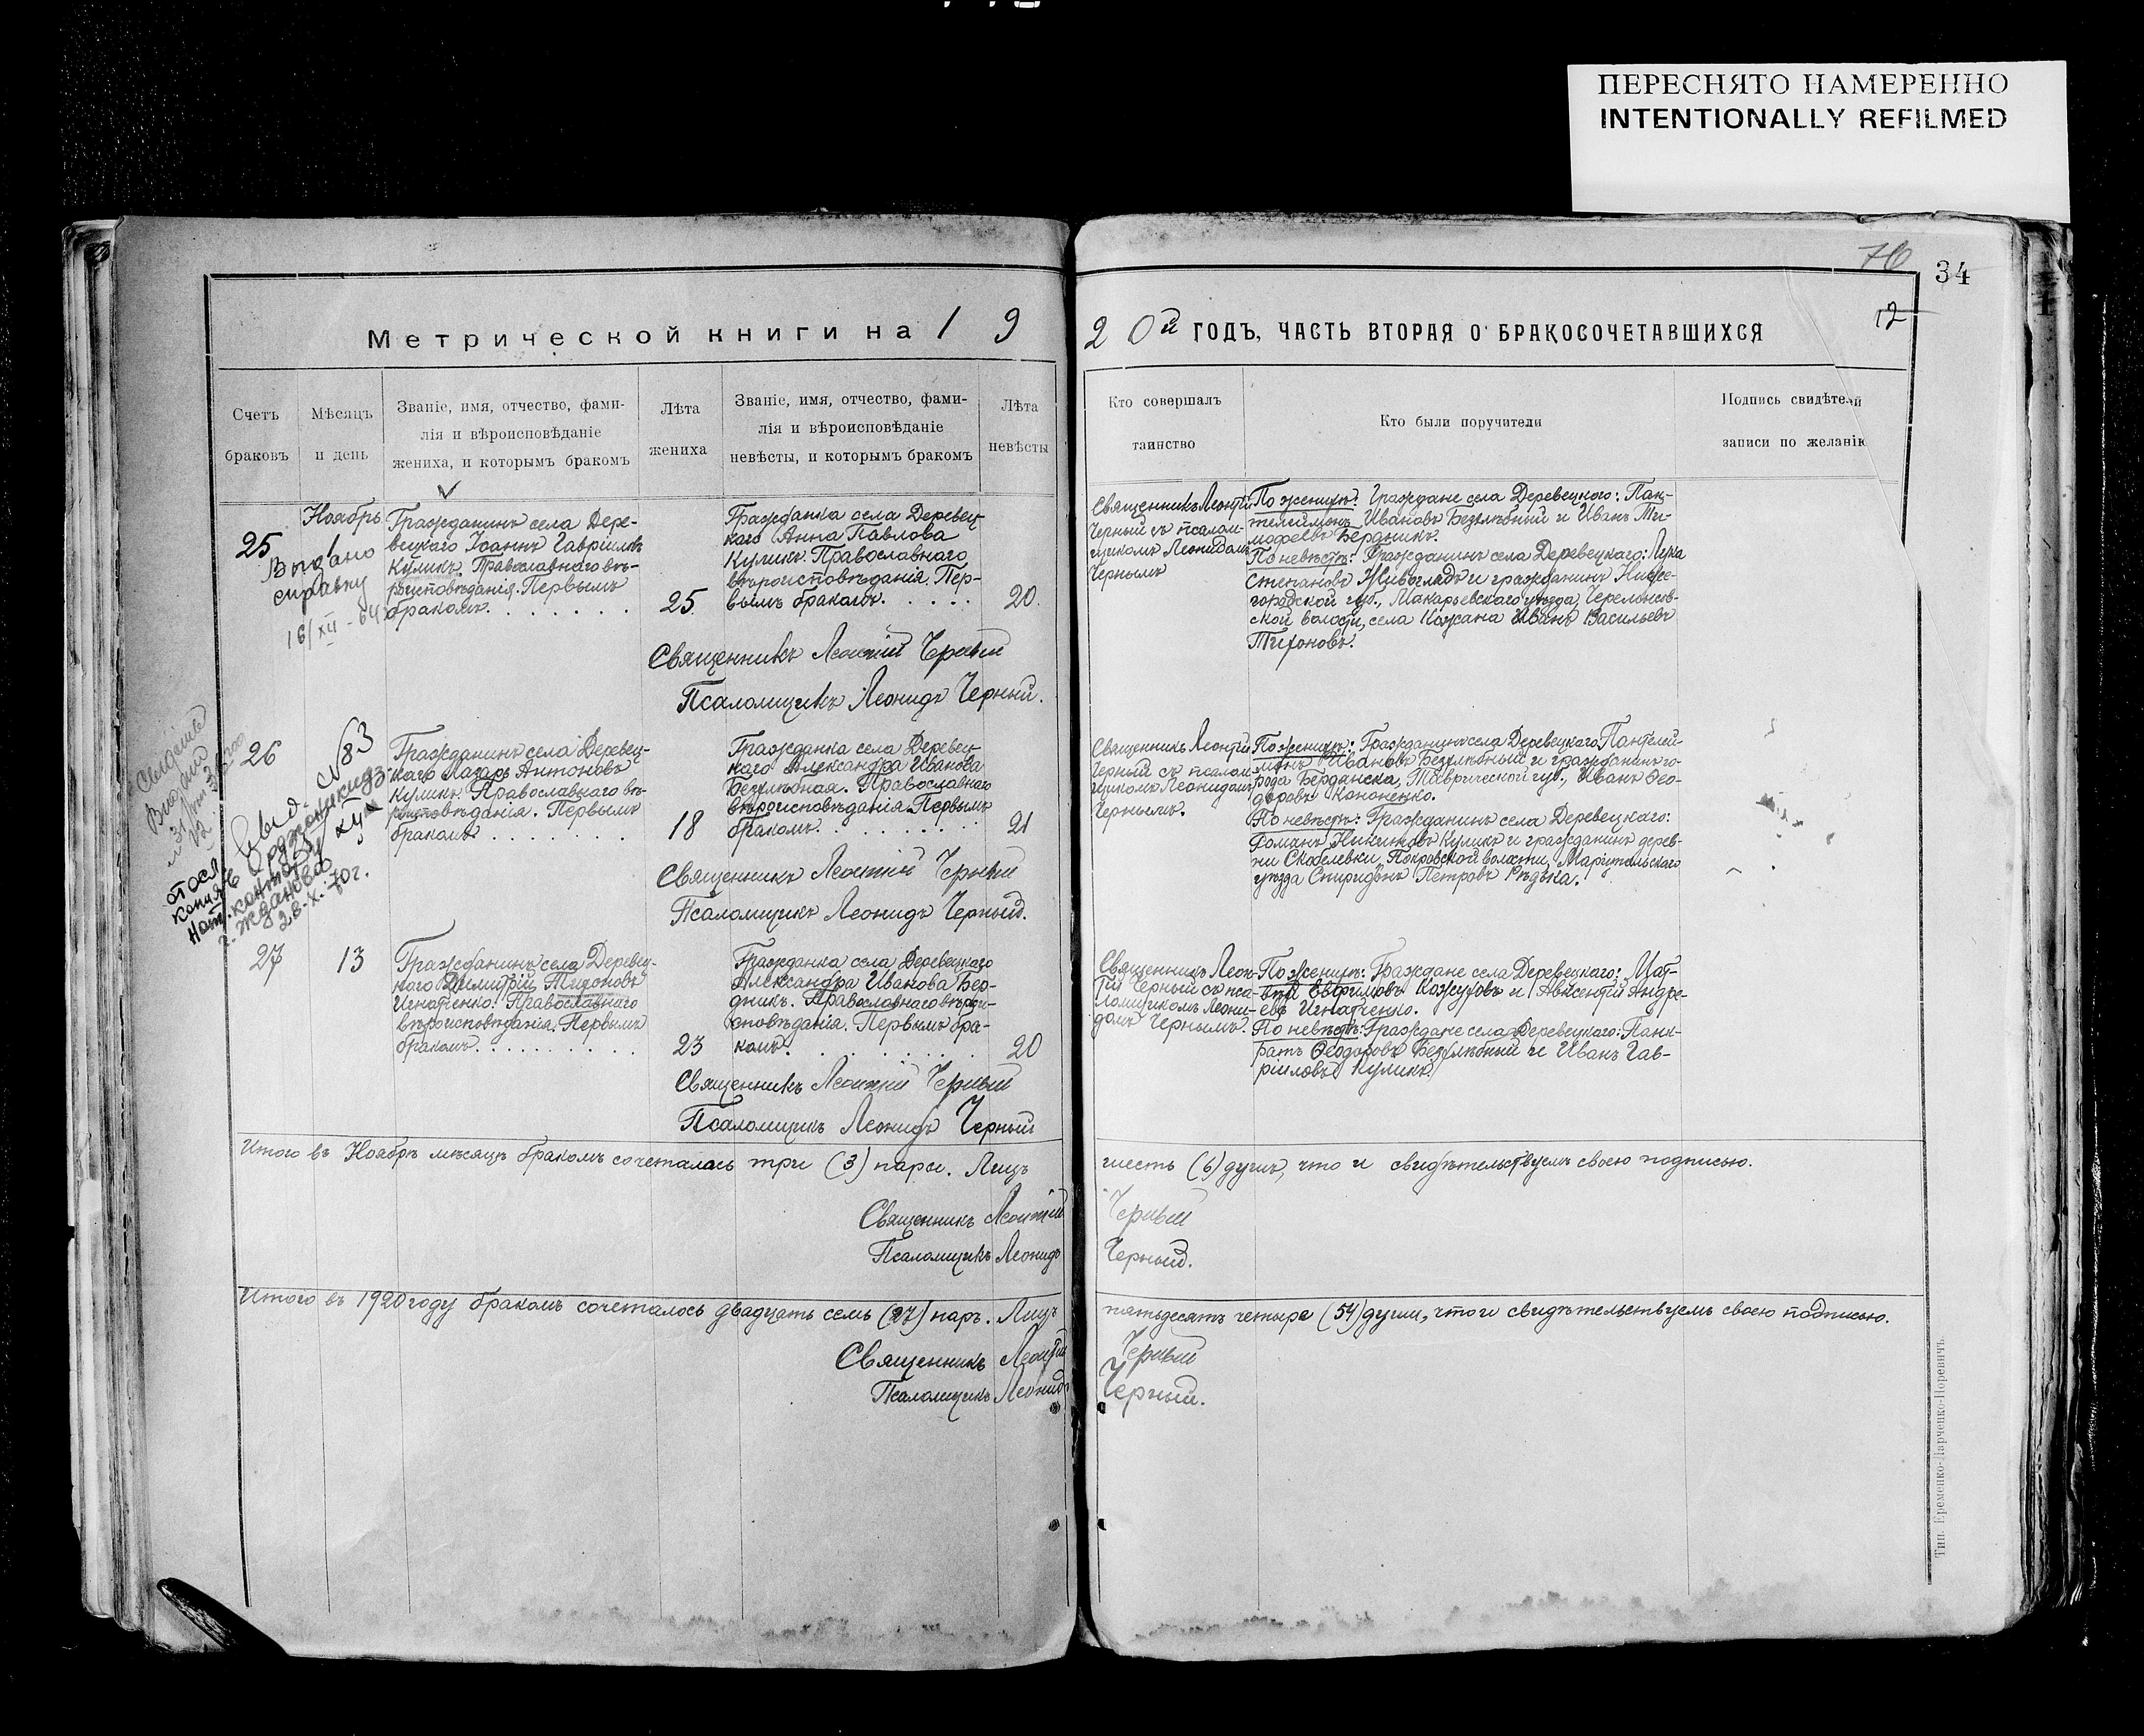 ПЕРЕСНЯТО НАМЕРЕННО
INTENTIONALLY REFILMED
76
34
12
Метрической книги на 1 9
2 0й ГОДЪ, ЧАСТЬ ВТОРАЯ О БРАКОСОЧЕТАВШИХСЯ
Счетъ
браковъ
Мѣсяцъ
и день
Званіе, имя, отчество, фами-
лія и вѣроисповѣданіе
жениха, и которымъ бракомъ
Лѣта
жениха
Званіе, имя, отчество, фами-
лія и вѣроисповѣданіе
невѣсты, и которымъ бракомъ
Лѣта
невѣсты
Кто совершалъ
таинство
Кто были поручители
Подпись свидѣтелей
записи по желанію
25
Ноябрь
Выдано
справку
16/XII-64
Гражданинъ села Дере-
вецкаго Іоаннъ Гавріиловъ
Куликъ. Православнаго вѣ-
роисповѣданія. Первымъ
бракомъ. . . . . . .
25.
Гражданка села Деревец-
каго Анна Павлова
Куликъ. Православнаго
вѣроисповѣданія. Пер-
вымъ бракомъ. . . . .
20.
Священникъ Леонтій
Черный съ псалом-
щикомъ Леонидомъ
Чернымъ
По женихѣ: Граждане села Деревецкого: Пан-
телеймонъ Ивановъ Безхлѣбный и Иванъ Ти-
мофеевъ Бердникъ.
По невѣстѣ: Гражданинъ села Деревецкаго: Лука
Степановъ Живогладъ и гражданинъ Ниже-
городской губ., Макарьевскаго уѣзда,
ской волости, села Иванъ Васильевъ
Тихоновъ.
Священникъ Леонтій Черный
Псаломщикъ Леонидъ Черный.
26
№83
Выдано
28.X.70г.
Гражданинъ села Деревец-
каго Лазарь Антоновъ
Куликъ. Православнаго вѣ-
роисповѣданія. Первымъ
бракомъ. . . . . . .
18
Гражданка села Деревец-
каго Александра Иванова
Безхлѣбная. Православнаго
вѣроисповѣданія. Первымъ
бракомъ. . . . . . .
21
Священникъ Леонтій
Черный съ псалом-
щикомъ Леонидомъ
Чернымъ.
По женихѣ: Гражданинъ села Деревецкаго Пантелей-
монъ Ивановъ Безхлѣбный и гражданинъ го-
рода Бердянска, Таврической губ., Иванъ Ѳео-
доровъ Кононенко.
По невѣстѣ: Гражданинъ села Деревецкаго:
Романъ Никитовъ Куликъ и гражданинъ дерев-
ни Скобелевки, Покровской волости, Маріупольскаго
уѣзда Спиридонъ Петровъ Рѣдька.
Священникъ Леонтій Черный
Псаломщикъ Леонидъ Черный.
27
13
Гражданинъ села Деревец-
кого Димитрій Тихоновъ
Игнатченко. Православнаго
вѣроисповѣданія. Первымъ
бракомъ. . . . . . . . .
23
Гражданка села Деревецкаго
Александра Иванова Бер-
дникъ. Православнаго вѣрои-
сповѣданія. Первымъ бра-
комъ. . . . . . . .
20
Священникъ Леон-
тій Черный съ пса-
ломщикомъ Леони-
домъ Чернымъ.
По женихѣ: Граждане села Деревецкаго: Мат-
вѣй Евфимовъ Кожуховъ и Авксентій Андре-
евъ Игнатченко.
По невѣстѣ: Граждане села Деревецкаго: Панк-
ратъ Ѳеодоровъ Безхлѣбный и Иванъ Гав-
ріиловъ Куликъ.
Священникъ Леонтій Черный
Псаломщикъ Леонидъ Черный
Итого въ Ноябрѣ мѣсяцѣ бракомъ сочеталась три (3) пары. Лицъ
шесть (6) душъ, что и свидѣтельствуемъ своею подписью.
Священникъ Леонтій
Черный
Псаломщикъ Леонидъ
Черный.
Итого въ 1920 году бракомъ сочеталось двадцать семь (27) паръ. Лицъ
пятьдесятъ четыре (54) души, что и свидѣтельствуемъ своею подписью.
Священникъ Леонтій
Черный
Псаломщикъ Леонидъ
Черный.
Тип. Еременко-Ларченко-Норевичъ